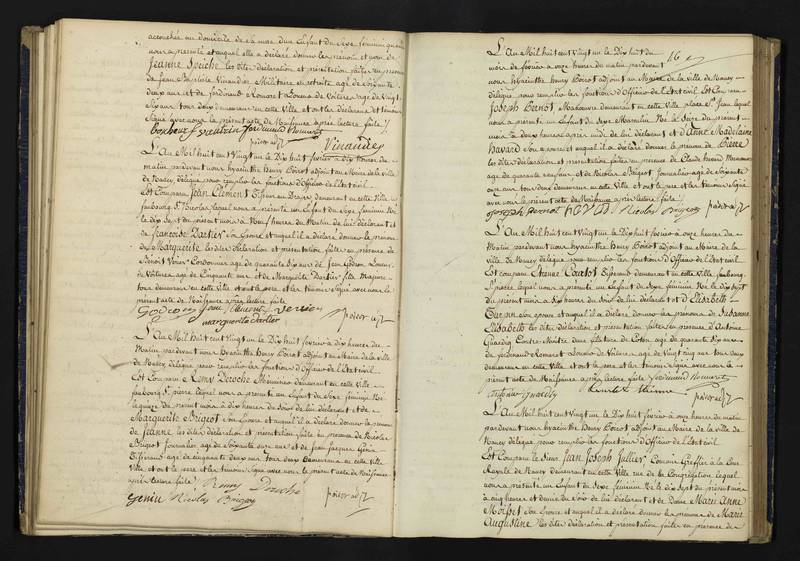 accouchée au domicile de la mère d'un Enfant du Sexe féminin qu'elle
nous a présenté et auquel elle a déclaré donner les prénoms et nom de
Jeanne les dites déclaration et présentation faites en présence
de Jean Baptiste Vinandier Militaire en retraite agé de soixante
deux ans et de Ferdinand Romaret Loueur de Voitures agé de Vingt
Six ans tous deux demeurant en cette Ville et ont les déclarant et témoins
Signé avec nous le présent acte de Naissance après lecture faite
ferdinand Romaret
Vinandier
p. oirot adjt
L'An Mil huit cent Vingt un le Dix huit février à dix heures du
matin pardevant nous hyacinthe Henry Poirot adjoint au Maire de la ville
de Nancy, délégué pour remplir les fonctions d'Officier de l'Etat civil
Est Comparu Jean Clément Tisseran en Draps demeurant en cette Ville
faubourg St. Nicolas lequel nous a présenté un Enfant du Sexe féminin Né
le dix Sept du présent mois à Neuf heures du Matin de lui déclarant et
de Françoise Dartier Son Epouse et auquel il a déclaré donner le prénom
de Marguerite les dites déclaration et présentation faites en présence de
Benoit Voirin Cordonnier agé de quarante dix ans et Jean Godron Loueur
de Voitures agé de Cinquante ans et de Marguerite Dartier fille Majeure
tous demeurant en cette Ville et ont le père et les témoins Signé avec nous le
présent acte de Naissance après lecture faite
Godron jean clement Voirin
marguerite dartier
p. oirot adjt
L'An Mil huit cent Vingt un le Dix huit février à dix heures du
Matin pardevant nous hyacinthe Henry Poirot adjoint au Maire de la ville
de Nancy délégué pour remplir les fonctions d'Officier de l'Etat civil
Est Comparu Remy Deroche Menuisier demeurant en cette Ville
faubourg St. Pierre lequel nous a présenté un Enfant du Sexe féminin Né
le quinze du présent mois à dix heures du Soir de lui déclarant et de
Marguerite Brigeot Son Epouse et auquel il a déclaré donner le prénom
de Jeanne les dites déclaration et présentation faites en présence de Nicolas
Brigeot Journalier agé de Soixante onze ans et de Jean Jacques Génin
Tisserand agé de cinquante deux ans tous deux demeurans en cette Ville
Ville et ont le père et les témoins Signé avec nous le présent acte de Naissance
après lecture faite Remy Deroche
Genin Nicolas Brigeot
p. oirot adjt
16
L'An Mil huit cent Vingt un le Dix huit du
mois de février à onze heures du matin pardevant
nous hyacinthe Henry Poirot adjoint au Maire de la ville de Nancy
délégué pour remplir les fonctions d'Officier de l'Etat civil Est Comparu
Joseph Pernot Manœuvre demeurant en cette ville place St. Jean lequel
nous a présenté un Enfant du Sexe Masculin Né le Seize du présent
mois à deux heures après midi de lui déclarant et d'Anne Madelaine
Havard Son Epouse et auquel il a déclaré donner le prénom de Pierre
les dites déclaration et présentation faites en présence de Claude
agé de quarante neuf ans et de Nicolas Brigeot Journalier agé de Soixante
onze ans tous deux demeurans en cette Ville et ont le père et les témoins Signé
avec nous le présent acte de Naissance après lecture faite
joseph pernot Nicolas Brigeot
p. oirot adjt
L'An Mil huit cent Vingt un le Dix huit février à onze heures du
Matin pardevant nous hyacinthe Henry Poirot adjoint au Maire de la
Ville de Nancy délégué pour remplir les fonctions d'Officier de l'Etat civil
Est comparu Tisserand demeurant en cette Ville faubourg
St. Pierre lequel nous a présenté un Enfant du Sexe féminin Né le dix Sept
du présent mois à dix heures du Soir de lui déclarant et d'Elisabeth
Son Epouse et auquel il a déclaré donner les prénoms de Susanne
Elisabeth les dites déclaration et présentation faites en présence d'Antoine
Contre-Maître d'une filature de Coton agé de quarante dix ans
de ferdinand Romaret Loueur de Voitures agé de Vingt cinq ans tous deux
demeurans en cette Ville et ont le père et les témoins Signé avec nous le
présent acte de Naissance après lecture faite ferdinand Romaret
antoine
p. oirot adjt
L'An Mil huit cent Vingt un le Dix huit février à onze heures du matin
pardevant nous hyacinthe Henry Poirot adjoint au Maire de la Ville de
Nancy délégué pour remplir les fonctions d'Officier de l'Etat civil
Est Comparu le Sieur Jean Joseph Jullier Commis Greffier à la Cour
Royale de Nancy demeurant en cette Ville rue de la Congrégation lequel
nous a présenté un Enfant du Sexe féminin Né le dix Sept du présent mois
à cinq heures et demie du Soir de lui déclarant et de Dame Marie Anne
Moisset Son Epouse et auquel il a déclaré donner les prénoms de Marie
Augustine les dites déclaration et présentation faites en présence de